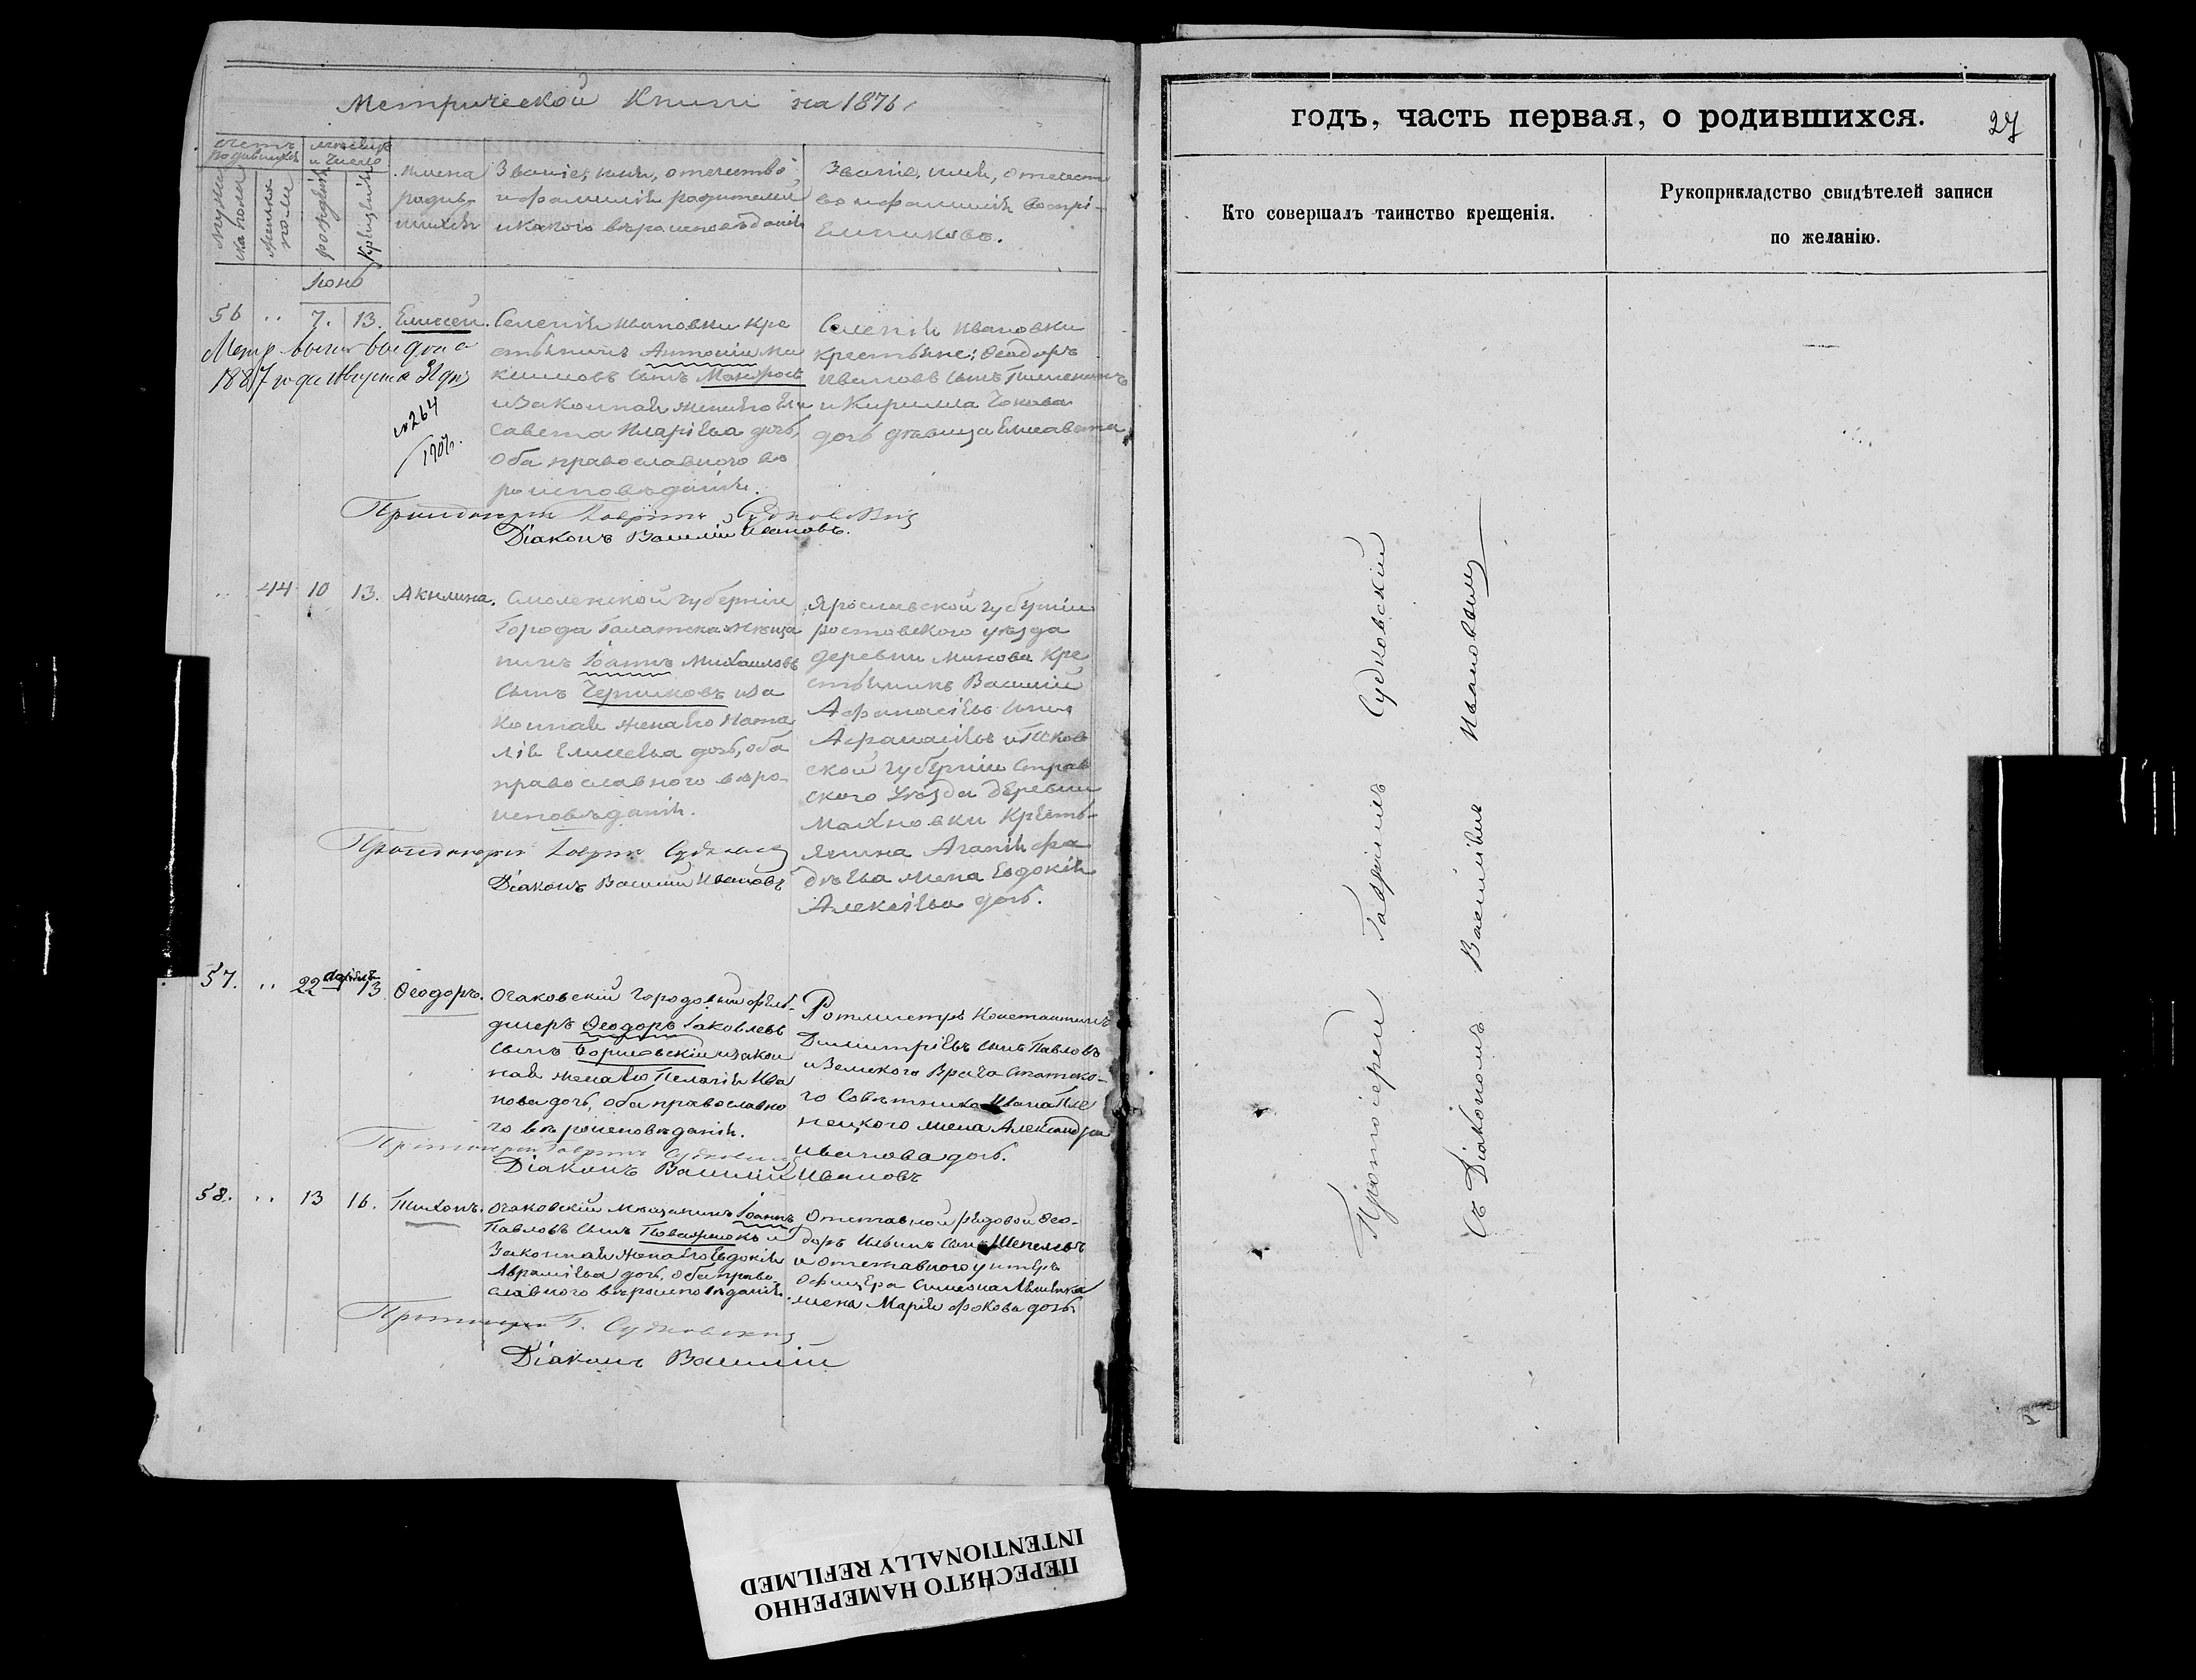 Метрической Книги на 1876 г
счетъ родившихся
мужеска пола
женска пола
мѣсяцъ и число
рожденія
крещенія
Имена родив-шихся
Званіе, имя, отечество,
и фамилія родителей
и какого вѣроисповѣданія
Званіе, имя, отечест
во и фамилія воспрі-
емниковъ.
Іюнь
56 .. 7. 13. Елисей.
Селенія Ивановки кре
стьянинъ Антоній Ма
ксимовъ сынъ
и законная жена его Ели
савета Иларіева дочь,
оба православнаго вѣ
роисповѣданія.
Селенія Ивановки
крестьяне: Ѳеодоръ
Ивановъ сынъ
и Кирилла
дочь дѣвица Елисавета
1887 года Августа 31 дня
№ 264
Протоіерей Гавріилъ Судковскій
Діаконъ Василій Ивановъ.
.. 44 10 13. Акилина.
Смоленской губерніи
Города мѣща
нинъ Іоаннъ Михаиловъ
сынъ Черниковъ и за
конная жена его Ната
лія Елисеева дочь, оба
православнаго вѣро-
исповѣданія.
Ярославской губерніи
ростовского уѣзда
деревни кре
стьянинъ Василій
Афанасіевъ сынъ
Афанасіевъ и Псков
ской губерніи
ского Уѣзда деревни
Махновки Кресть-
янина жена Евдокія
Алексіева дочь.
Протоіерей Гавріилъ Судковскій
Діаконъ Василій Ивановъ
57. .. 22 Апрѣля 13 Ѳеодоръ.
Очаковскій Городовый фельд-
дшеръ Ѳеодоръ Іаковлевъ
сынъ и закон
ная жена его Пелагія Ива
нова дочь, оба православна
го вѣроисповѣданія.
Ротмистръ Константинъ
Димитріевъ сынъ Павловъ
и Земского Врача Статско-
го Совѣтника Ивана
жена Александра
Иванова дочь.
Протоіерей Гавріилъ Судковскій
Діаконъ Василій Ивановъ
58. .. 13 16. Тихонъ.
Очаковскій мѣщанинъ Іоаннъ
Павловъ сынъ и
законная жена его Евдокія
Авраміева дочь, оба право-
славного вѣроисповѣданія.
Отставной рядовой Ѳео-
доръ Ильинъ сынъ Шепелевъ
и отставного унтеръ
офицера Симеона
жена Марія Фокова дочь.
Протоіерей Г. Судковскій
Діаконъ Василій
годъ, часть первая, о родившихся.
27
Кто совершалъ таинство крещенія.
Рукоприкладство свидѣтелей записи
по желанію.
Протоіерей Гавріилъ Судковскій
съ Діакономъ Василіемъ Ивановымъ
ПЕРЕСНЯТО НАМЕРЕННО
INTENTIONALLY REFILMED